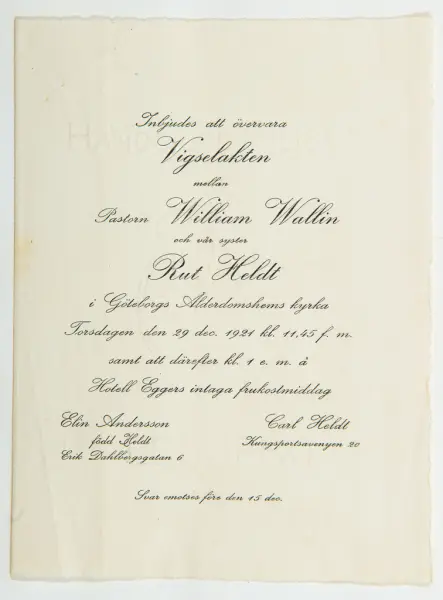 Inbjudes att övervara
Vigselakten
mellan
Pastorn William Wallin
och vår syster
Rut Heldt
i Göteborgs Ålderdomshems kyrka
Torsdagen den 29 dec. 1921 kl. 11,45 f. m.
samt att därefter kl. 1 e. m. å
Hotell Eggers intaga frukostmiddag
Elin Andersson
född Heldt
Erik Dahlbergsgatan 6
Carl Heldt
Kungsportsavenyen 20
Svar emotses före den 15 dec.